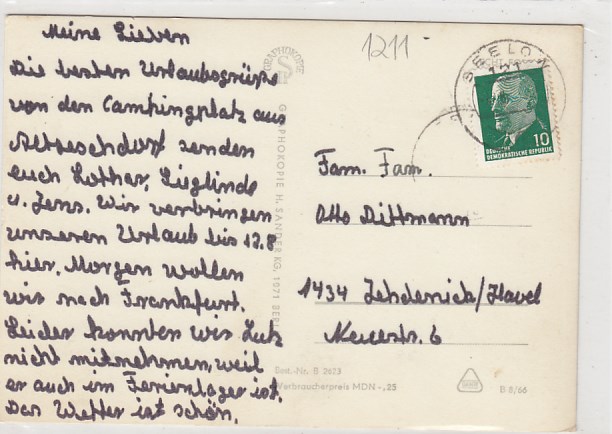 Meine Lieben
Die besten Urlaubsgrüße
von den Campingplatz aus
senden
euch Lothar, Sieglinde
u. Jens. Wir verbringen
unseren Urlaub bis 17.8
hier. Morgen wollen
wir nach Frankfurt.
Leider konnten wir Lutz
nicht mitnehmen, weil
er auch im Ferienlager ist.
Das Wetter ist schön.
GRAPHOKOPIE
GRAPHOKOPIE H. SANDER KG, 1071 BERLIN
1211
SEELOW
121
10
DEUTSCHE
DEMOKRATISCHE REPUBLIK
Fam. Fam.
Otto Dittmann
1434 Zehdenick/Havel
Neuestr. 6
Best.-Nr. B 2673
Verbraucherpreis MDN -,25
B 8/66